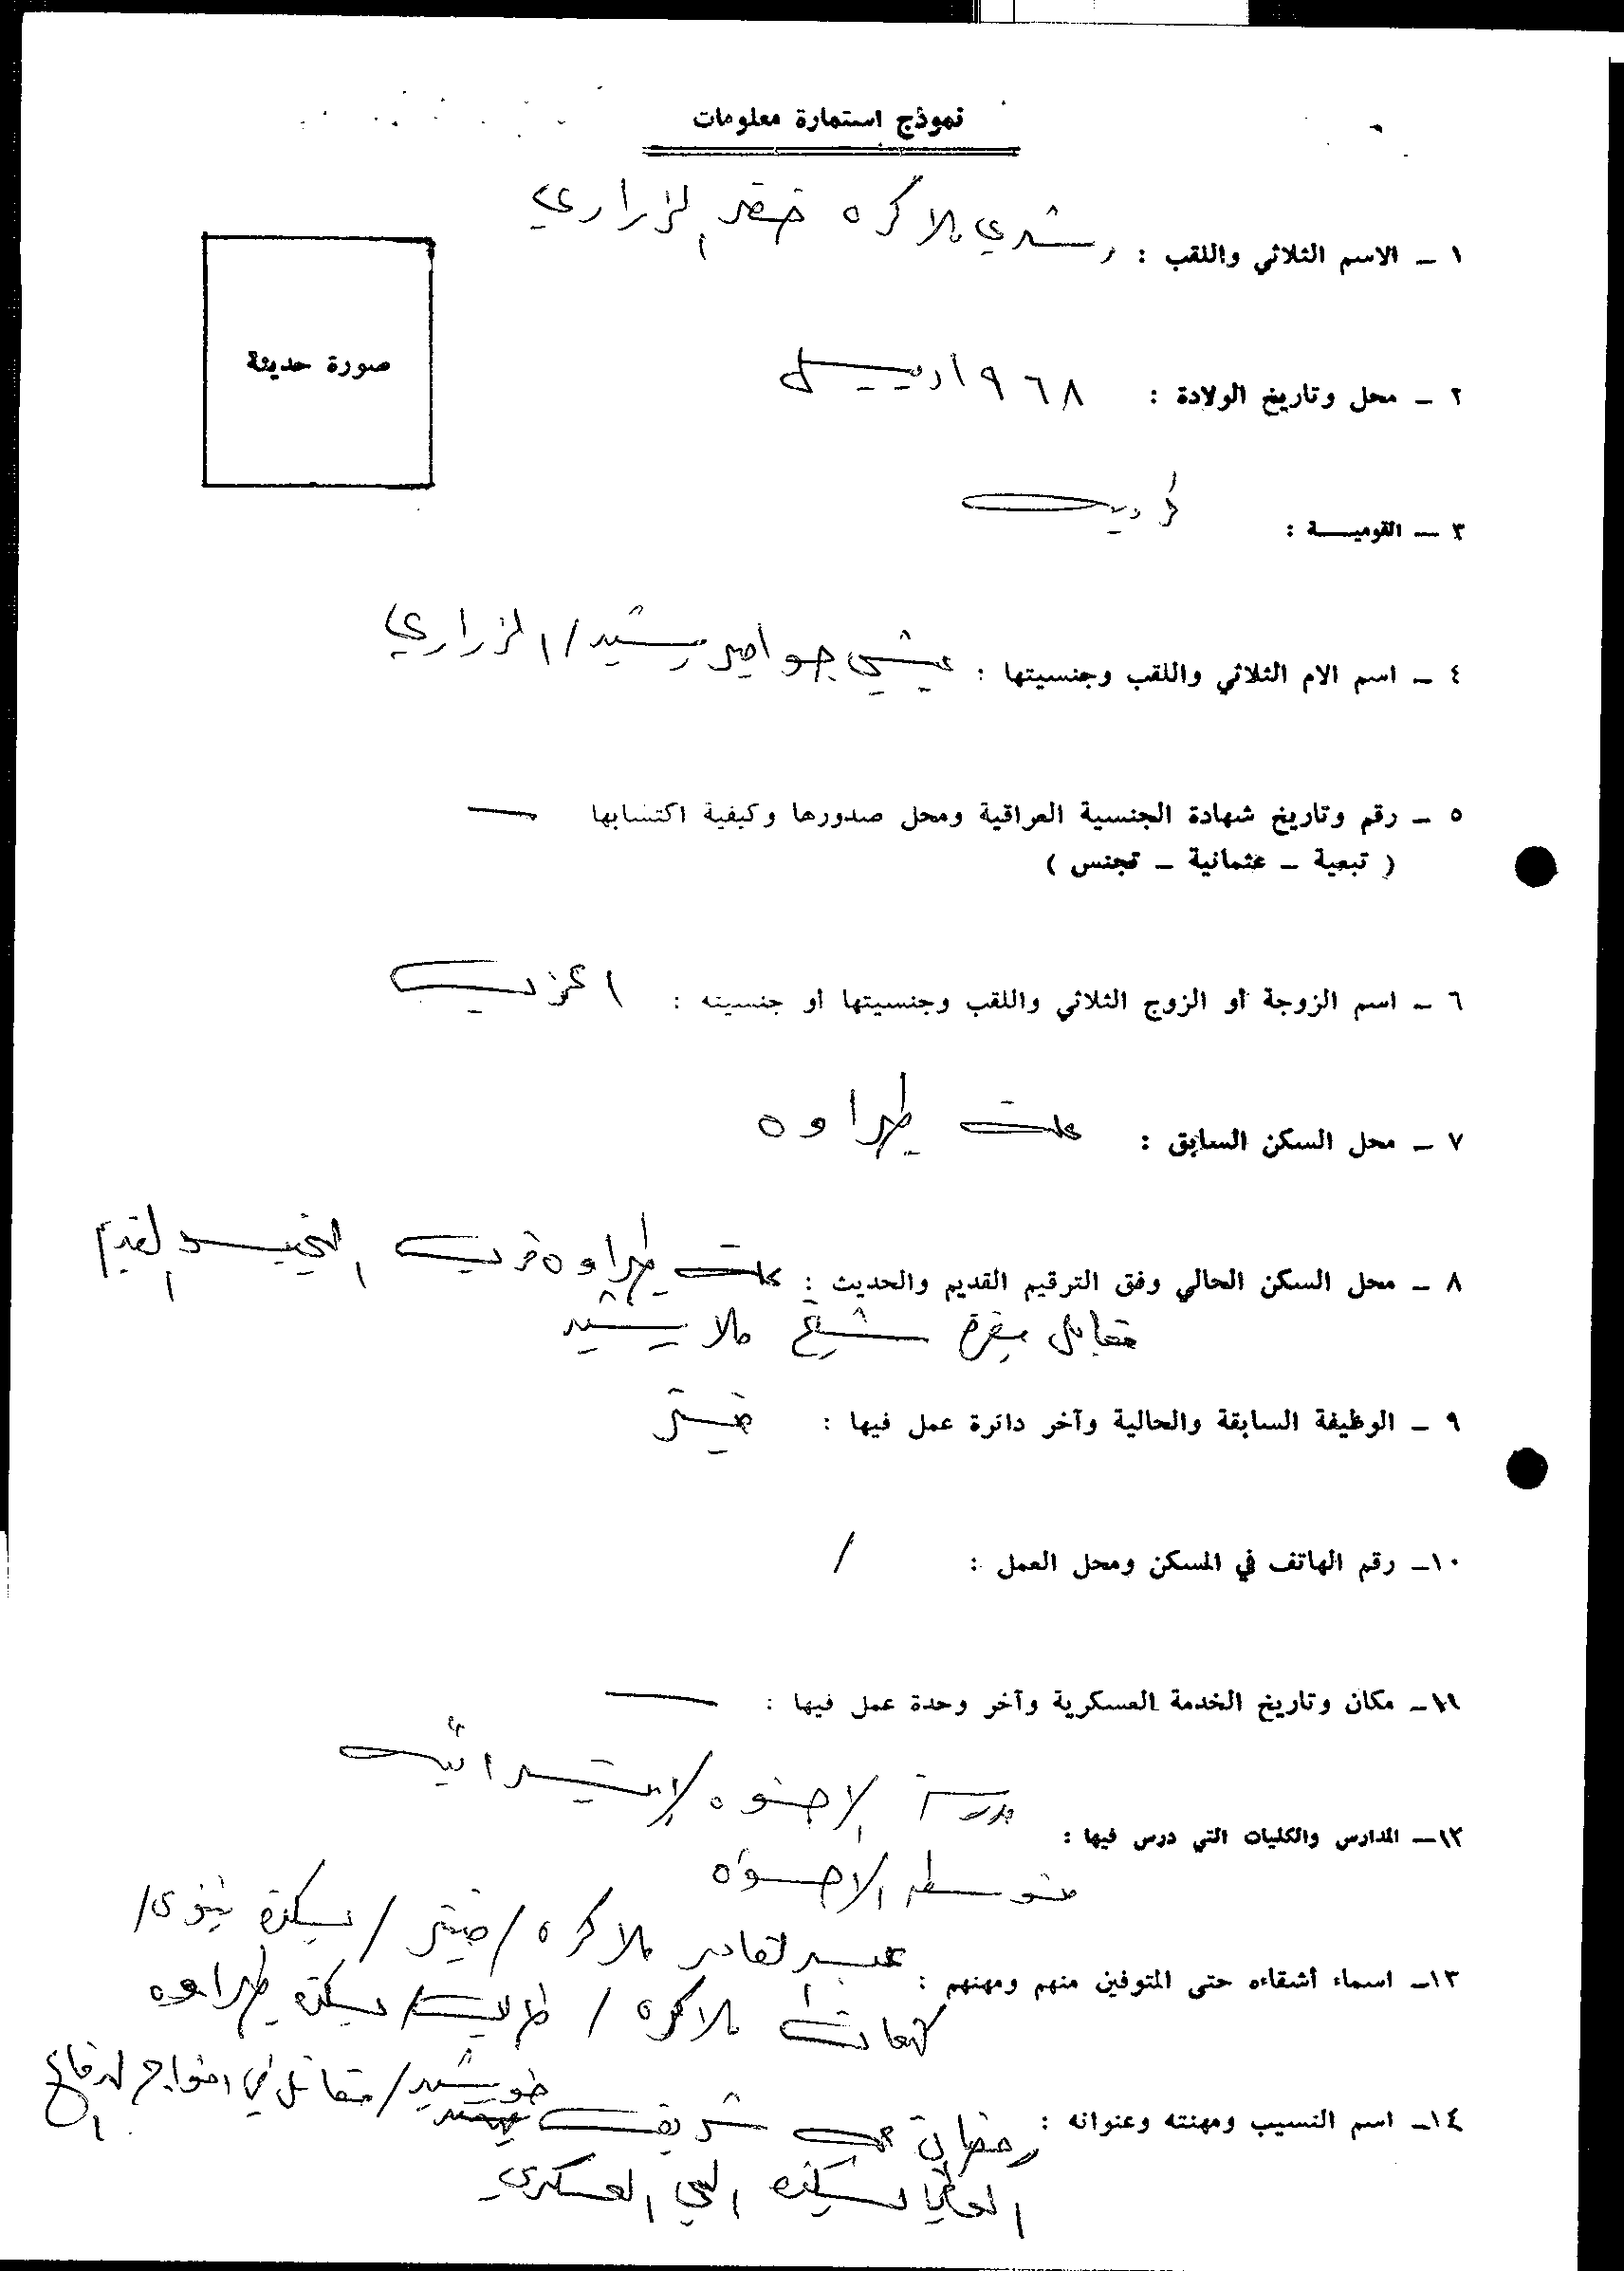 نموذج استمارة معلومات
١ – الاسم الثلاثي واللقب : رشدي ملا كره خضر الزراري
صورة حديثة
٢ – محل وتاريخ الولادة : ١٩٦٨ اربيل
٣ – القوميـــة : كردية
٤ – اسم الام الثلاثي واللقب وجنسيتها : عيشى جوامير رشيد / الزراري
٥ – رقم وتاريخ شهادة الجنسية العراقية ومحل صدورها وكيفية اكتسابها —
( تبعية – عثمانية – تجنس )
٦ – اسم الزوجة أو الزوج الثلاثي واللقب وجنسيتها أو جنسيته : اعزب
٧ – محل السكن السابق : محلة طيراوه
٨ – محل السكن الحالي وفق الترقيم القديم والحديث : محلة طيراوه قرب القديم
مقابل مقبرة شيخ ملا رشيد
٩ – الوظيفة السابقة والحالية وآخر دائرة عمل فيها : فيتر
١٠– رقم الهاتف في المسكن ومحل العمل : /
١١– مكان وتاريخ الخدمة العسكرية وآخر وحدة عمل فيها : —
١٢– المدارس والكليات التي درس فيها : مدرسة الاخوه الابتدائية
متوسطه الاخوه
١٣– اسماء أشقاءه حتى المتوفين منهم ومهنهم : عبدالقادر ملا كره / فيتر / يسكن نينوى /
ملا كره / / يسكن طيراوه
١٤– اسم النسيب ومهنته وعنوانه : رمضان شريف خورشيد / مقاتل في افواج الدفاع
يسكن الحي العسكري